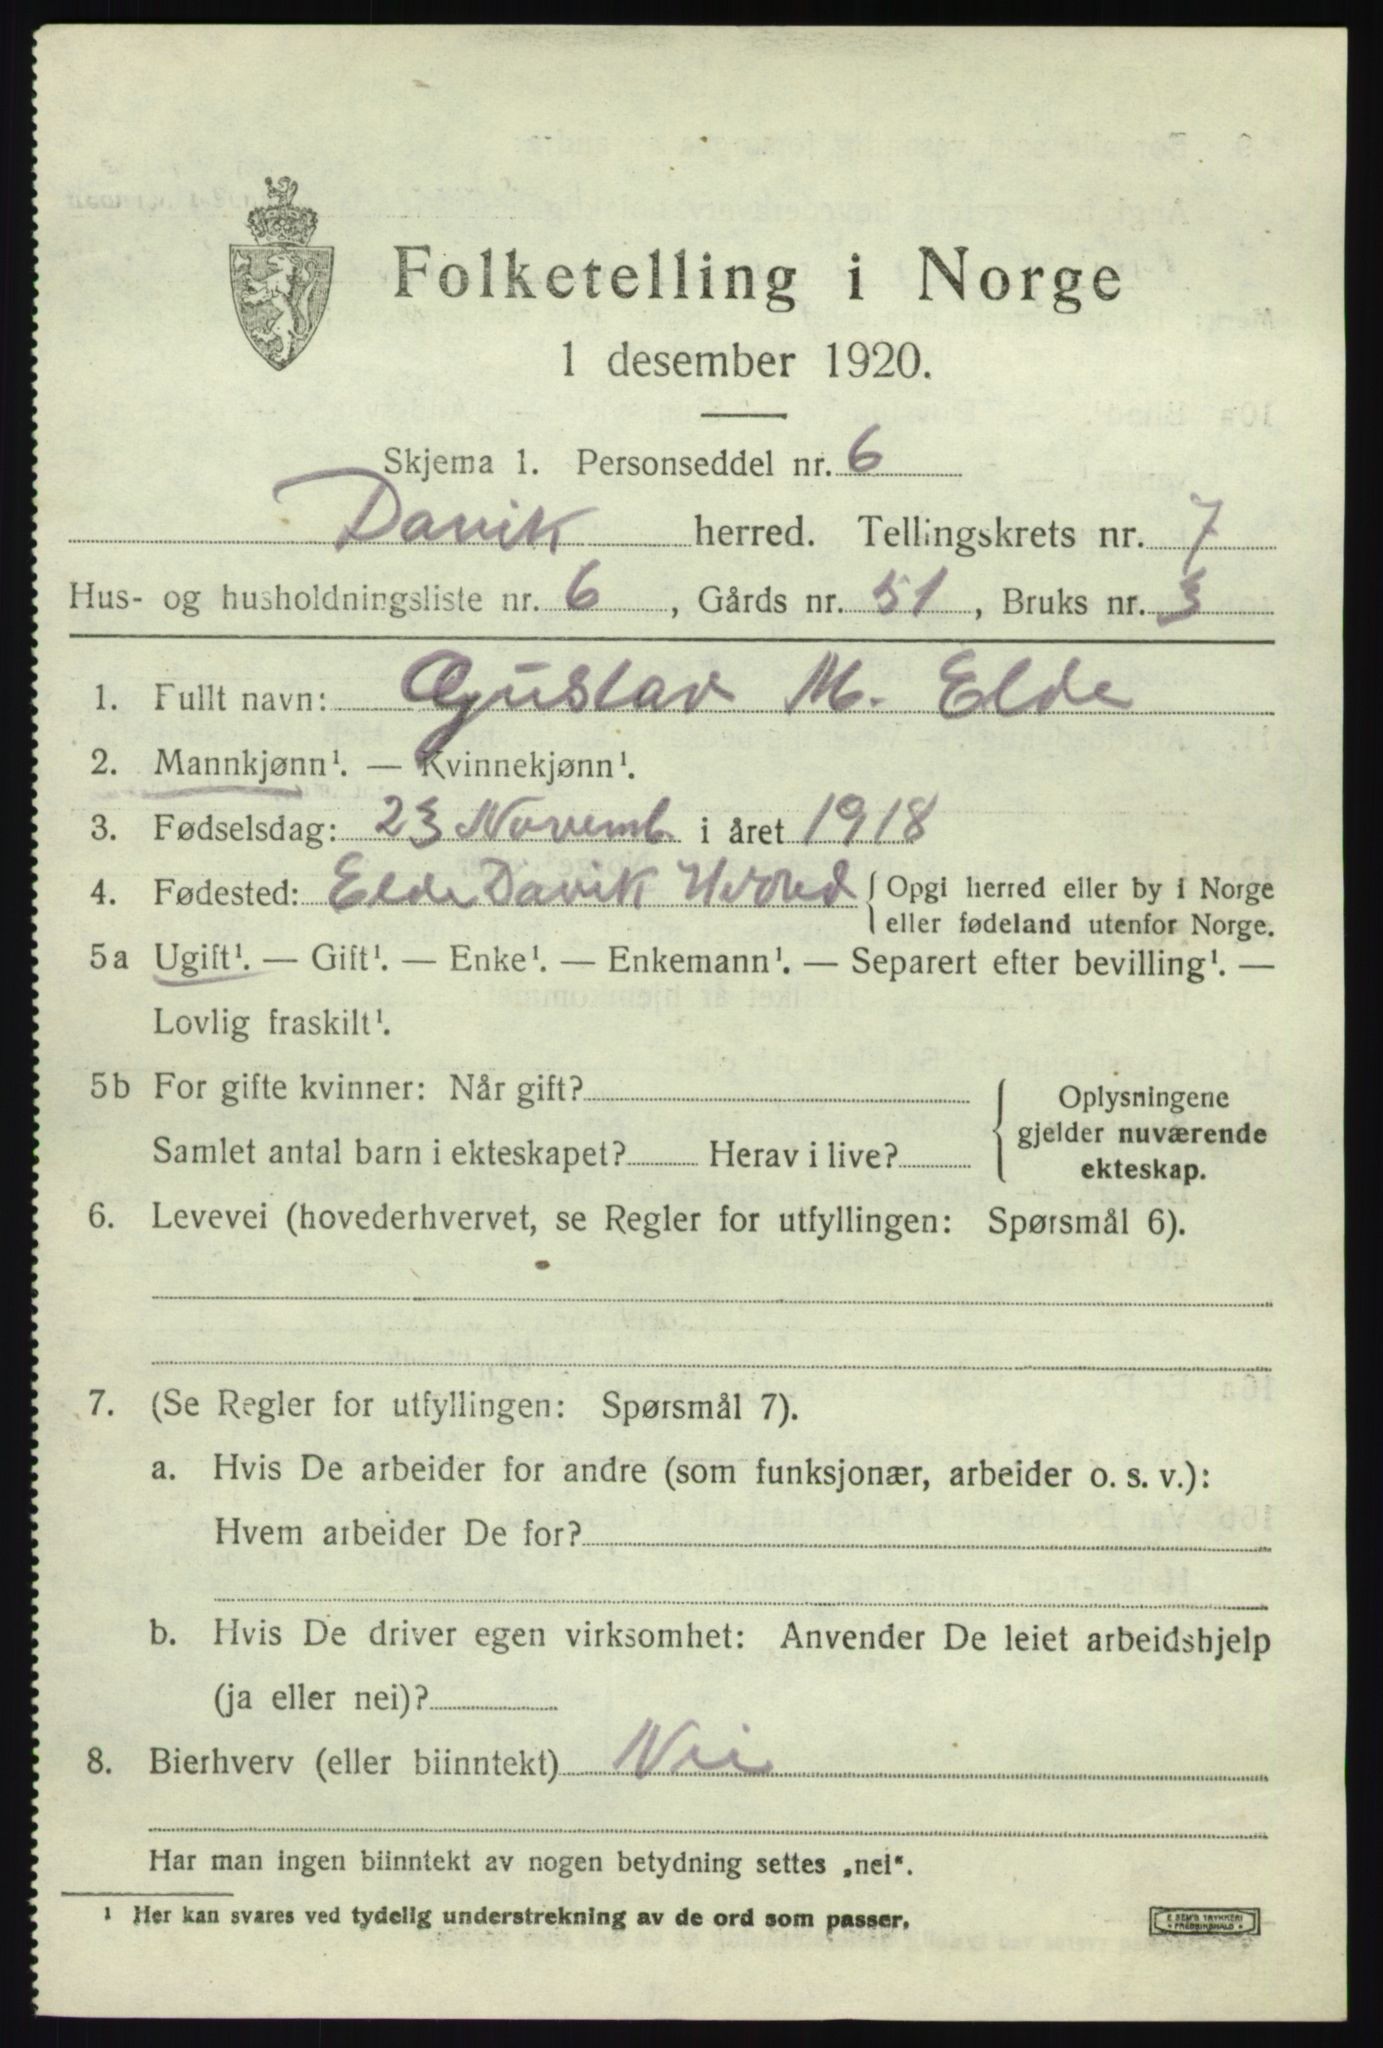 Folketelling i Norge
1 desember 1920.
Skjema 1. Personseddel nr. 6
Davik herred. Tellingskrets nr. 7
Hus- og husholdningsliste nr. 6, Gårds nr. 51, Bruks nr. 3
1. Fullt navn: Gustav M. Elde
2. Mannkjønn¹. — Kvinnekjønn¹.
3. Fødselsdag: 23 Novemb. i året 1918
4. Fødested: Elde Davik Herred { Opgi herred eller by i Norge
eller fødeland utenfor Norge.
5a Ugift¹. — Gift¹. — Enke¹. — Enkemann¹. — Separert efter bevilling¹. —
Lovlig fraskilt¹.
5b For gifte kvinner: Når gift? { Oplysningene
gjelder nuværende
Samlet antal barn i ekteskapet? Herav i live? ekteskap.
6. Levevei (hovederhvervet, se Regler for utfyllingen: Spørsmål 6).
7. (Se Regler for utfyllingen: Spørsmål 7).
a. Hvis De arbeider for andre (som funksjonær, arbeider o. s. v.):
Hvem arbeider De for?
b. Hvis De driver egen virksomhet: Anvender De leiet arbeidshjelp
(ja eller nei)?
8. Bierhverv (eller biinntekt) Nei
Har man ingen biinntekt av nogen betydning settes „nei“.
¹ Her kan svares ved tydelig understrekning av de ord som passer.
E. SEM'S TRYKKERI
FREDRIKSHALD